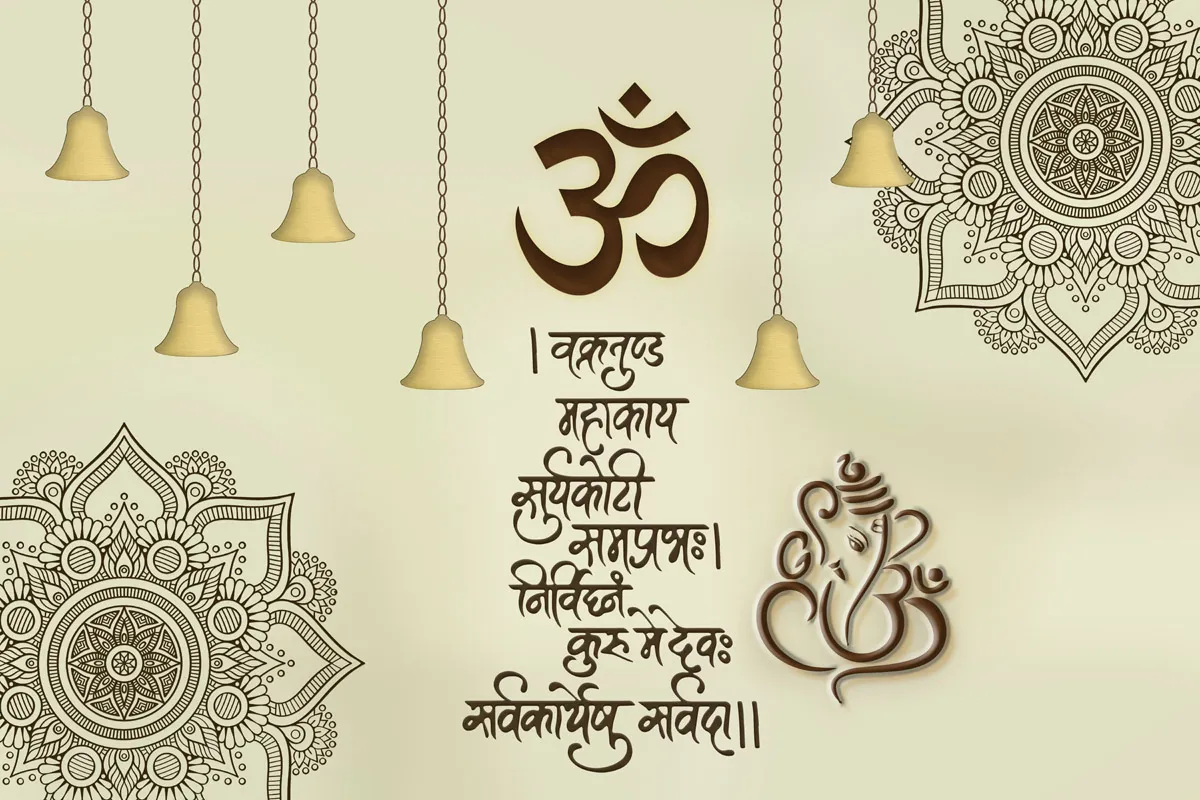 ॐ
। वक्रतुण्ड
महाकाय
सुर्यकोटी
समप्रभः।
निर्विघ्नं
कुरु मे देवः
सर्वकार्येषु सर्वदा।।